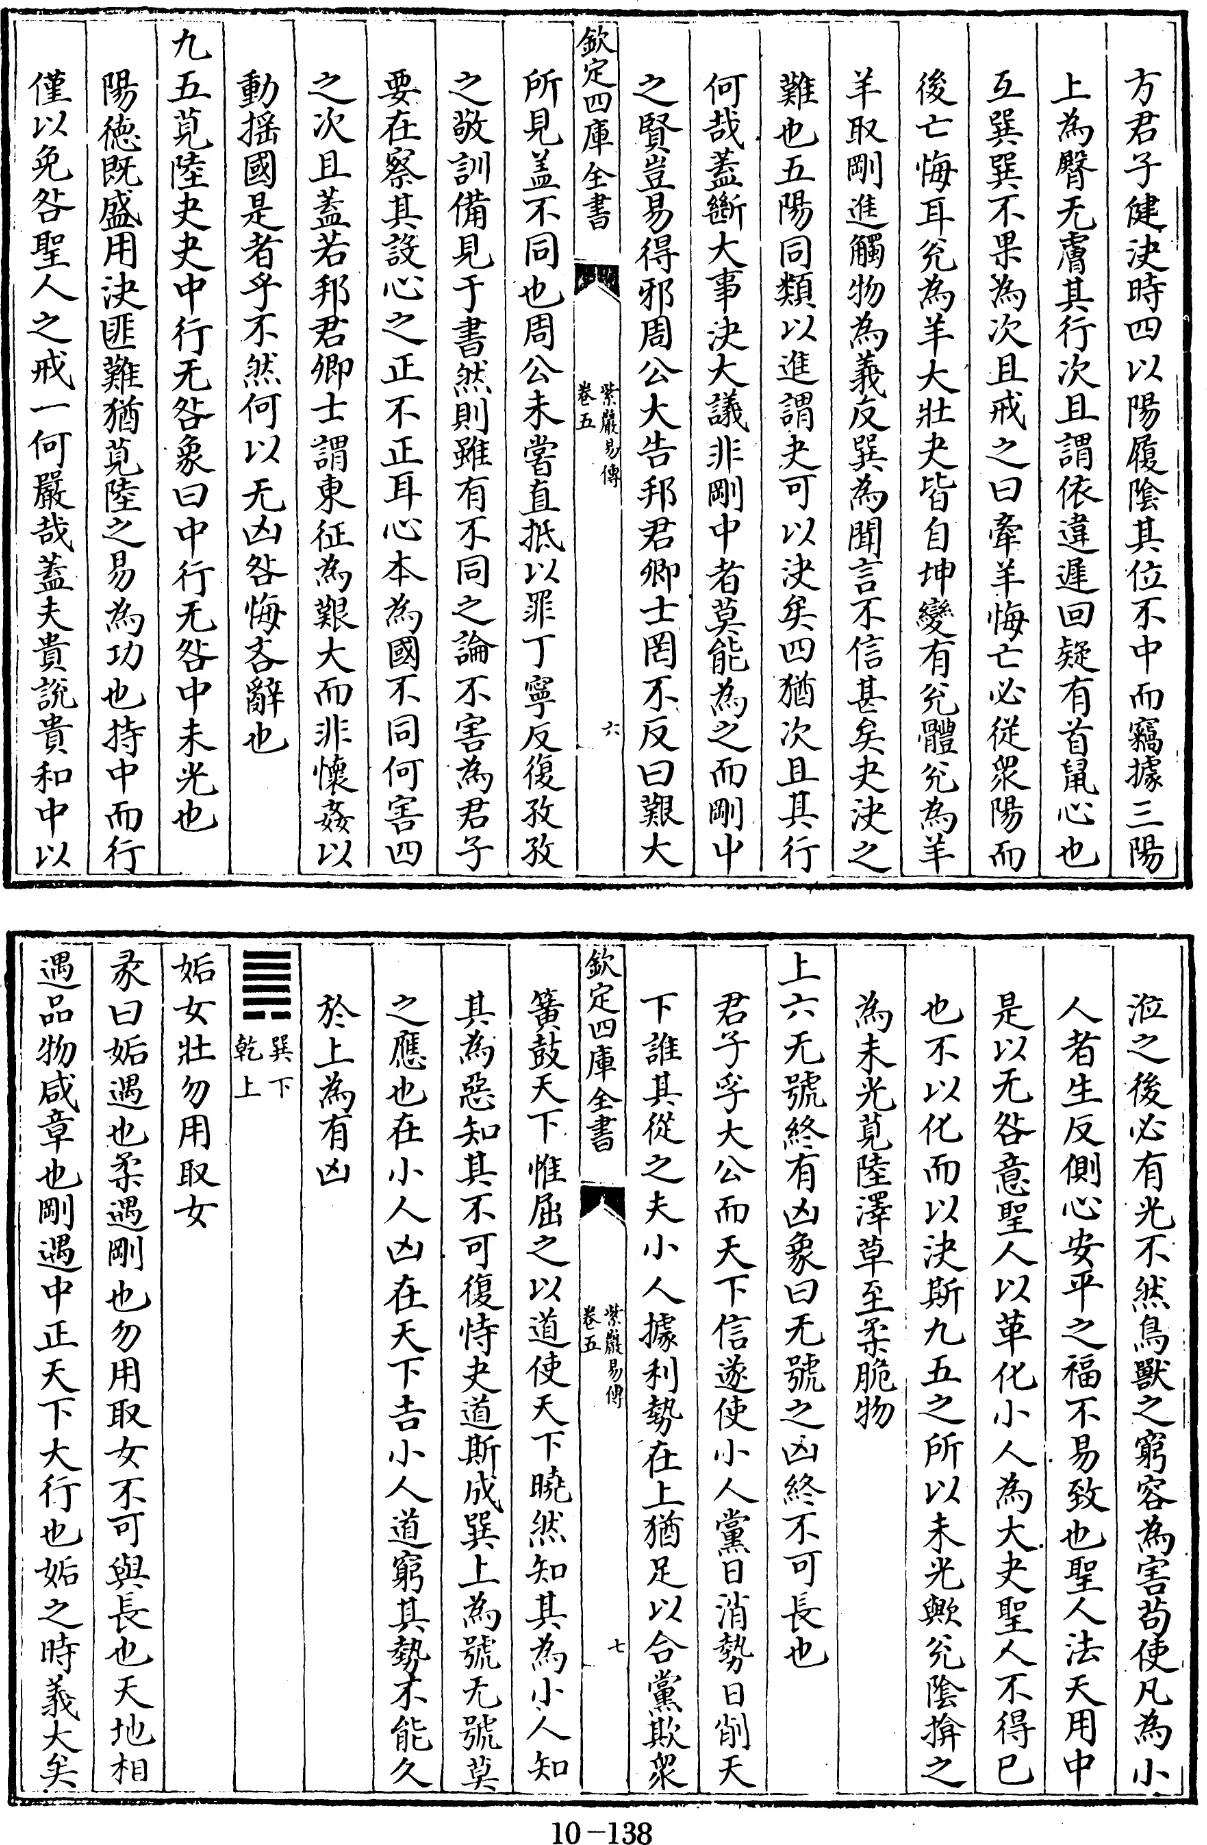 方君子健決時四以陽履隂其位不中而竊據三陽
上為臀无膚其行次且謂依違遲回疑有首鼠心也
互巽巽不果為次且戒之曰牽羊悔亡必從衆陽而
後亡悔耳兊為羊大壯夬皆自坤變有兊體兊為羊
羊取剛進觸物為義反巽為聞言不信甚矣夬決之
難也五陽同類以進謂夬可以決矣四猶次且其行
何哉蓋斷大事決大議非剛中者莫能為之而剛中
之賢豈易得邪周公大告邦君卿士罔不反曰艱大
欽定四庫全書
紫巖易傳
卷五
六
所見盖不同也周公未嘗直抵以罪丁寧反復孜孜
之敬訓備見于書然則雖有不同之論不害為君子
要在察其設心之正不正耳心本為國不同何害四
之次且蓋若邦君卿士謂東征為艱大而非懷姦以
動揺國是者乎不然何以无凶咎悔吝辭也
九五莧陸夬夬中行无咎象曰中行无咎中未光也
陽徳既盛用決匪難猶莧陸之易為功也持中而行
僅以免咎聖人之戒一何嚴哉蓋夫貴説貴和中以
涖之後必有光不然鳥獸之窮容為害茍使凡為小
人者生反側心安平之福不易致也聖人法天用中
是以无咎意聖人以革化小人為大夬聖人不得已
也不以化而以決斯九五之所以未光歟兊隂揜之
為未光莧陸澤草至柔脆物
上六无號終有凶象曰无號之凶終不可長也
君子孚大公而天下信遂使小人黨日消勢日削天
下誰其從之夫小人據利勢在上猶足以合黨欺衆
欽定四庫全書
紫巖易傳
卷五
七
簧鼓天下惟屈之以道使天下曉然知其為小人知
其為惡知其不可復恃夬道斯成巽上為號无號莫
之應也在小人凶在天下吉小人道窮其勢不能久
於上為有凶
巽下
乾上
姤女壯勿用取女
彖曰姤遇也柔遇剛也勿用取女不可與長也天地相
遇品物咸章也剛遇中正天下大行也姤之時義大矣
10-138